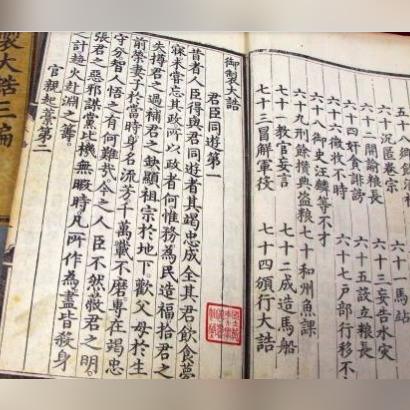 五十八鄉飲
六十沉匿卷宗 六十一馬站
六十二開諭糧長 六十三妄告水災
六十四奸貪誹謗 六十五設立糧長
六十六徵收不時 六十七戶部行移不
六十八御史汪麟等不才
六十九刑餘攢典盜糧 七十和州魚課
七十一教官妄言 七十二成造馬船
七十三冒解軍役 七十四頒行大誥
御製大誥
君臣同遊第一
昔者人臣得與君同遊者其竭忠成全其君飲食夢
寐未嘗忘其政所以政者何惟務為民造福拾君之
失撙君之過補君之缺顯祖宗於地下歡父母於生
前榮妻子於當時身名流芳千萬載不磨專在竭忠
守分智人悟之有何難哉今之人臣不然蔽君之明
張君之惡邪謀黨比機無暇時凡所作為盡皆殺身
之計趨火赴淵之籌
官親起稾第二
製大誥三編